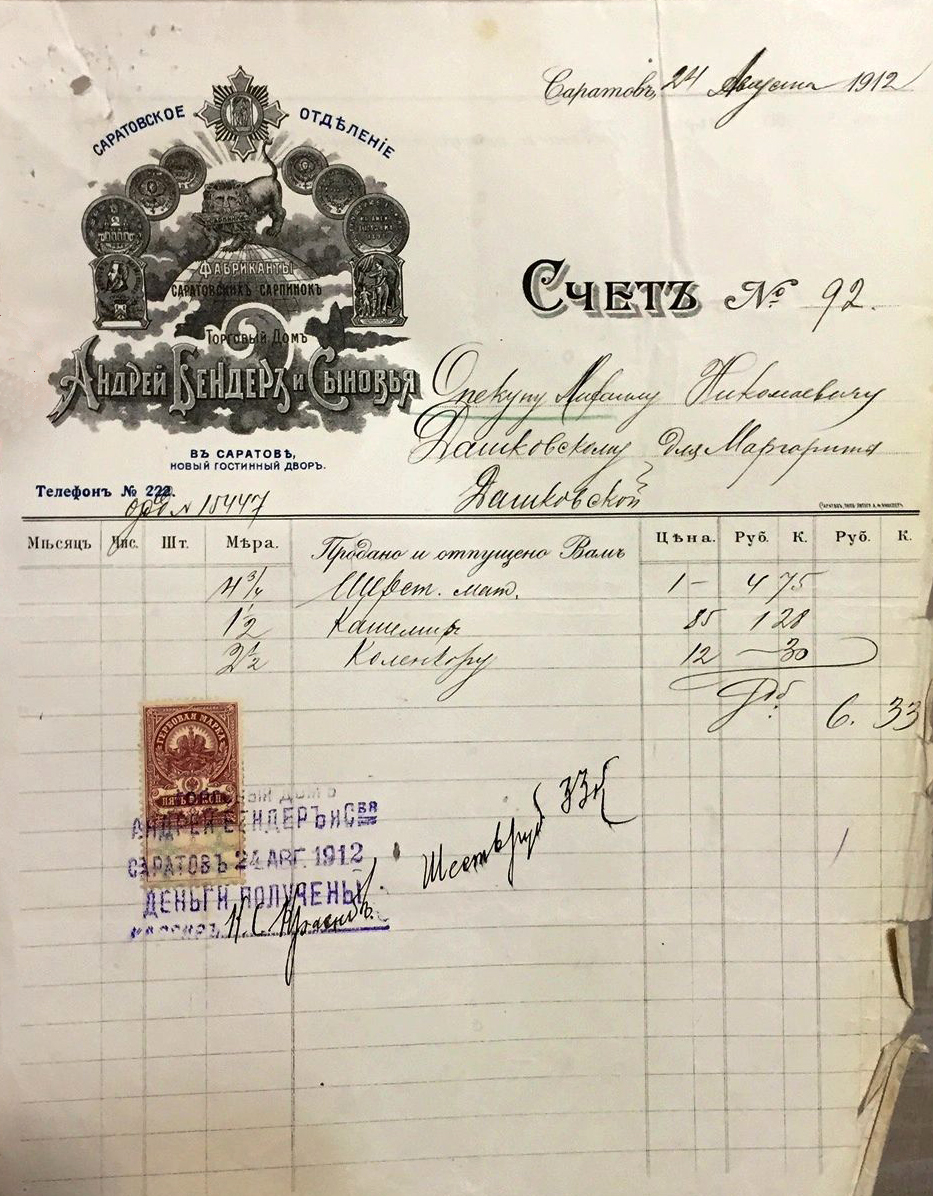 Саратовъ, 24 Августа 1912
САРАТОВСКОЕ ОТДѢЛЕНІЕ
ФАБРИКАНТЫ
САРАТОВСКИХЪ САРПИНОКЪ
Торговый Домъ
Андрей Бендеръ и Сыновья
ВЪ САРАТОВѢ,
НОВЫЙ ГОСТИННЫЙ ДВОРЪ.
Телефонъ № 222.
Счетъ № 92.
Опекуну Михаилу Николаевичу
Дашковскому для Маргориты
Дашковской
№ 15447
Мѣсяцъ Чис. Шт. Мѣра. Продано и отпущено Вамъ Цѣна. Руб. К. Руб. К.
4 3/4 Шерст. мат. 1 – 4 75
1 1/2 Кашемиръ 85 1 28
2 1/2 Коленкору 12 – 30
Руб. 6. 33
ГЕРБОВАЯ МАРКА
ПЯТЬ КОП.
ТОРГОВЫЙ ДОМЪ
АНДРЕЙ БЕНДЕРЪ и СВЯ
САРАТОВЪ 24 АВГ. 1912
ДЕНЬГИ ПОЛУЧЕНЫ
КАССИРЪ
Шесть руб 33к